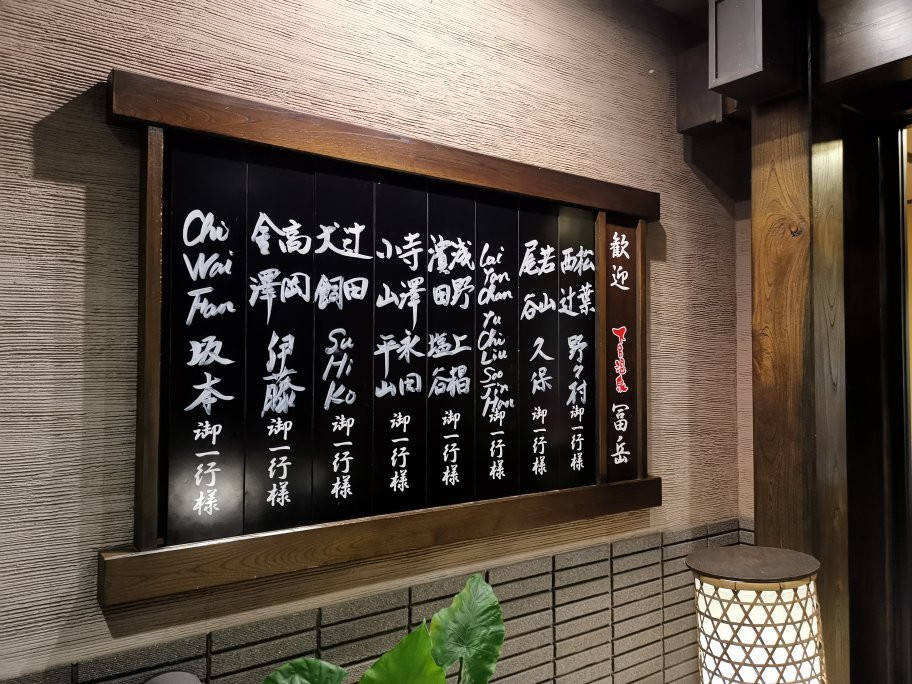 歓迎 下呂温泉 冨岳
松葉 西辻 野々村 御一行様
若山 尾谷 久保 御一行様
Lai Yan Chan Yu Chi Liu Soo Jin Han 御一行様
浅野 濱田 塩谷 御一行様
寺澤 小山 平山 御一行様
辻田 犬飼 Su Hi Ko 御一行様
高岡 金澤 伊藤 御一行様
Chi Wai Fan 坂本 御一行様